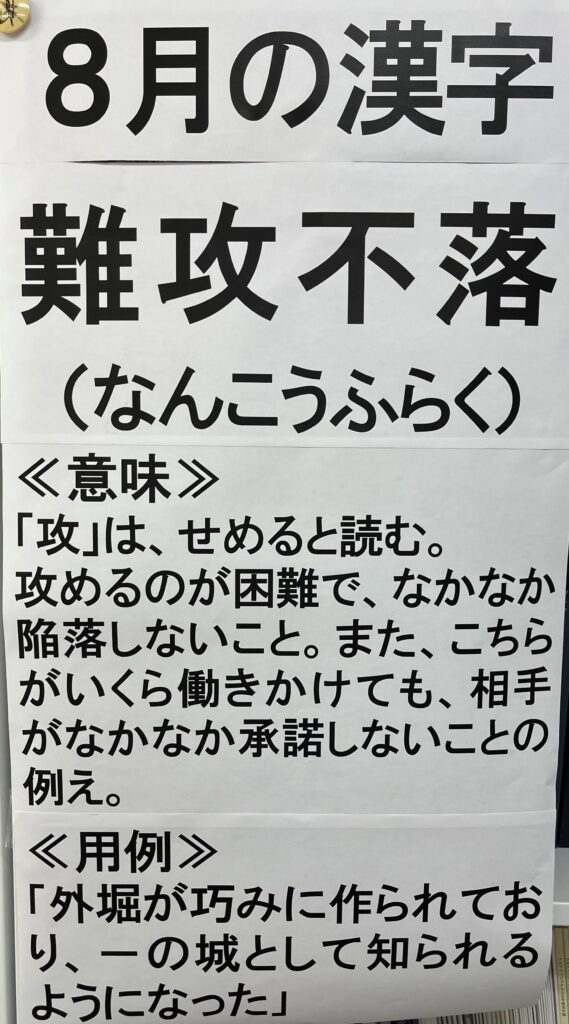 8月の漢字
難攻不落
(なんこうふらく)
≪意味≫
「攻」は、せめると読む。
攻めるのが困難で、なかなか
陥落しないこと。また、こちら
がいくら働きかけても、相手
がなかなか承諾しないことの
例え。
≪用例≫
「外堀が巧みに作られてお
り、―の城として知られる
ようになった」